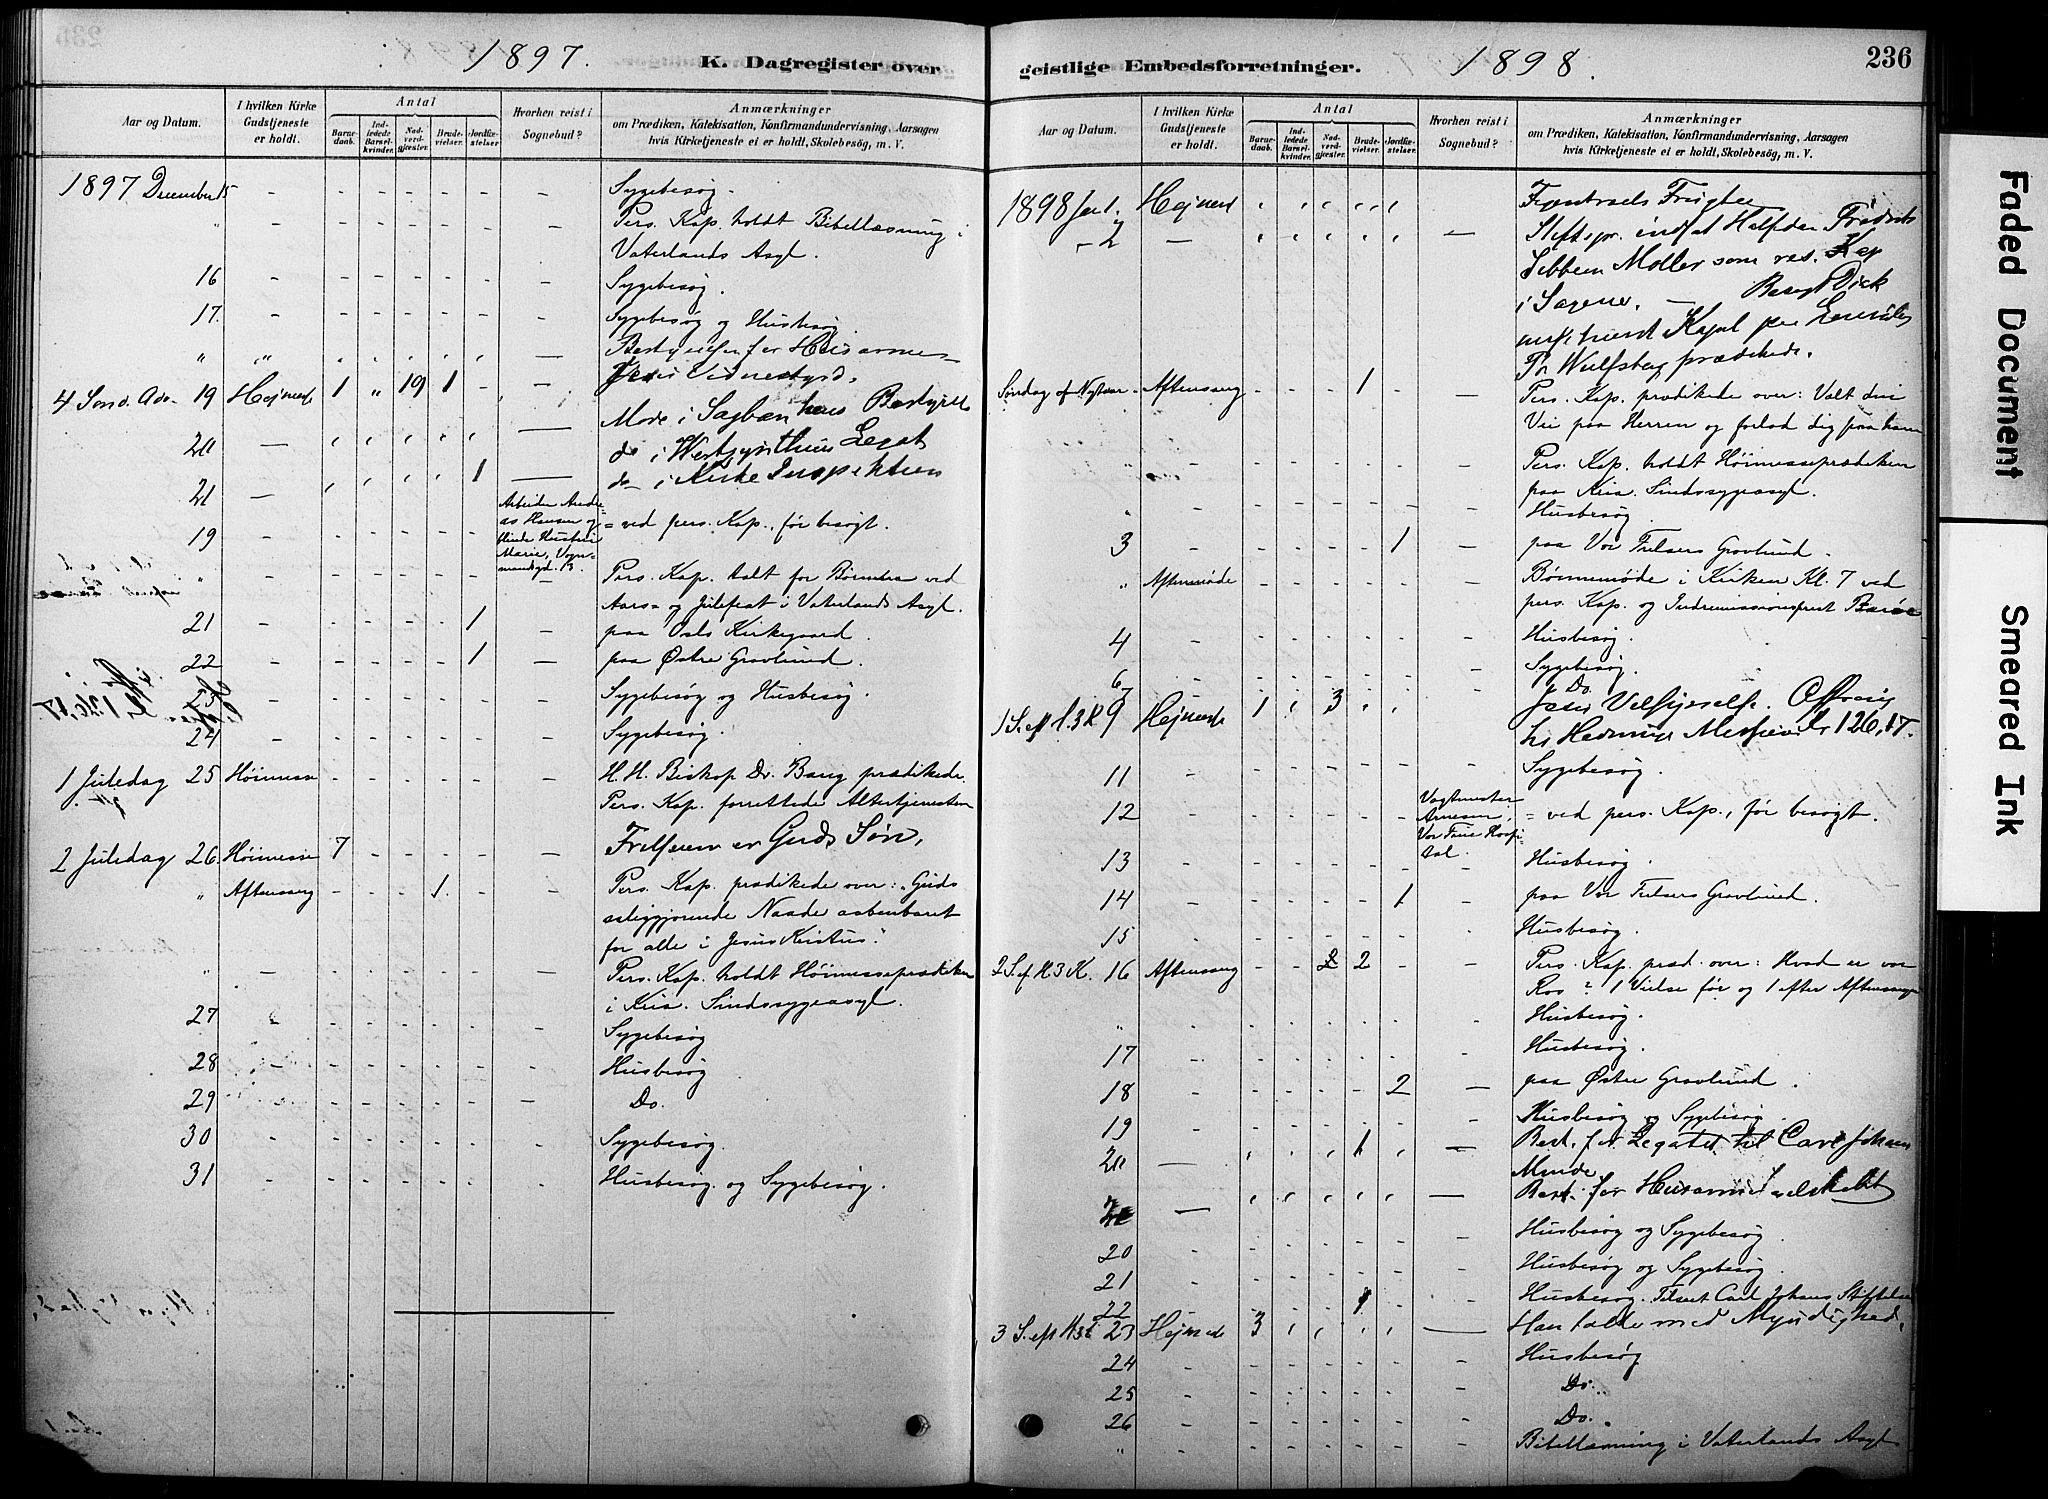 1897.
K. Dagregister over
Aar og Datum.
I hvilken Kirke Gudstjeneste er holdt.
Antal
Barnedaab.
Indledede Barselkvinder.
Nadverdgjester.
Brudevielser.
Jordfæstelser.
Hvorhen reist i Sognebud?
Anmærkninger
om Prædiken, Katekisation, Konfirmandundervisning, Aarsagen
hvis Kirketjeneste ei er holdt, Skolebesög, m. V.
1897 December 15 - - - - - - - Sygebesøg.
" - - - - - - - Pers. Kap. holdt Bibellæsning i
Vaterlands Asyl.
16 - - - - - - - Sygebesøg.
17. - - - - - - - Sygebesøg og Husbesøg.
" " Bestyrelsen for Husarmes
4 Sønd. Adv. 19 Højmesse 1 " 19 1 - - Jesu Vidnesbyrd.
20 — Møde i
do i Legat
21 — 1 — do i Kirke Inspektion
19 - - - - - - Arbeider Andreas Hansen og blinde Hustru Marie, Vognmandsgd. 13. = ved pers. Kap., før besøgt.
" - - - - - - - Pers. Kap. talt for Børnene ved
Aars- og Julefest i Vaterlands Asyl.
21 - - - - - 1 - paa Oslo Kirkegaard.
22 - - - - - 1 - paa Østre Gravlund.
23 - - - - - - - Sygebesøg og Husbesøg.
24 - - - - - - - Sygebesøg.
1 Juledag 25 Høimesse - - - - - - H. H. Biskop Dr. Bang prædikede.
Pers. Kap. forrettede Altertjenesten
2 Juledag 26 Høimesse 7 - - - - - Frelseren er Guds Søn.
" Aftensang - - - 1. - - Pers. Kap. prædikede over: "Guds
saliggjørende Naade aabenbaret
for alle i Jesus Kristus."
" - - - - - - - Pers. Kap. holdt Høimesseprædiken
i Kria. Sindssygeasyl.
27 - - - - - - - Sygebesøg
28 - - - - - - - Husbesøg
29 - - - - - - - Do.
30 - - - - - - - Sygebesøg.
31 - - - - - - - Husbesøg og Sygebesøg.
geistlige Embedsforretninger.
1898.
236
Aar og Datum.
I hvilken Kirke Gudstjeneste er holdt.
Antal
Barnedaab.
Indledede Barselkvinder.
Nadverdgjester.
Brudevielser.
Jordfæstelser.
Hvorhen reist i Sognebud?
Anmærkninger
om Prædiken, Katekisation, Konfirmandundervisning, Aarsagen
hvis Kirketjeneste ei er holdt, Skolebesög, m. V.
1898 Jan 1. Højmesse - Figentræets Frugter
- 2 — Stiftspr. indsat Halfdan Fredrik
Møller som res. Kap
i Sagene. —
Kapel paa
Pr Wulfsberg prædikede.
Søndag ef Nytaar - Aftensang - - - 1 - - Pers. Kap. prædikede over: Valt din
Vei paa Herren og forlad dig paa ham
" - - - - - - - Pers. Kap. holdt Høimesseprædiken
paa Kria. Sindssygeasyl.
" - - - - - - - Husbesøg
3 - - - - - 1 - paa Vor Frelsers Gravlund.
" Aftenmøde - - - - - - Bønnemøde i Kirken Kl. 7 ved
pers. Kap. og Indremissionsprest
4 - - - - - - - Husbesøg.
6 - - - - - - - Sygebesøg.
7 - - - - - - - Do.
1 S. eft H. 3 K 9 Højmesse 1 3 Jesu Offring
til Mission Kr 126,17.
11 - - - - - - - Sygebesøg.
12 - - - - - - Vagtmester Arnesen, Vor Frue Hospital. = ved pers. Kap., før besøgt.
13 - - - - - - - Husbesøg.
14 - - - - - 1 - paa Vor Frelsers Gravlund.
15 - - - - - - - Husbesøg.
2 S. ef. H 3 K. 16 Aftensang - - 2 2 - - Pers. Kap. præd. over: Hvad er vor
Ros? 1 Vielse før og 1 efter Aftensangen
" - - - - - - - Husbesøg.
17 - - - - - - - Husbesøg.
18 - - - - - 2 - paa Østre Gravlund.
19 - - - - - - - Husbesøg og Sygebesøg
20 — 1 — Best. for Legatet til Carl Johans
Minde
— Best. for Husarmes
- - - - - - - Husbesøg og Sygebesøg.
20 - - - - - - - Husbesøg og Sygebesøg.
21 - - - - - - - Husbesøg. Tilseet Carl Johans Stiftelse
22
3 S. eft H 3 K 23 Højmesse 3 — Han talte med Myndighed.
24 - - - - - - - Husbesøg
25 - - - - - - - Do.
26 - - - - - - - Do.
" - - - - - - - Bibellæsning i Vaterlands Asyl
Faded Document
Smeared Ink